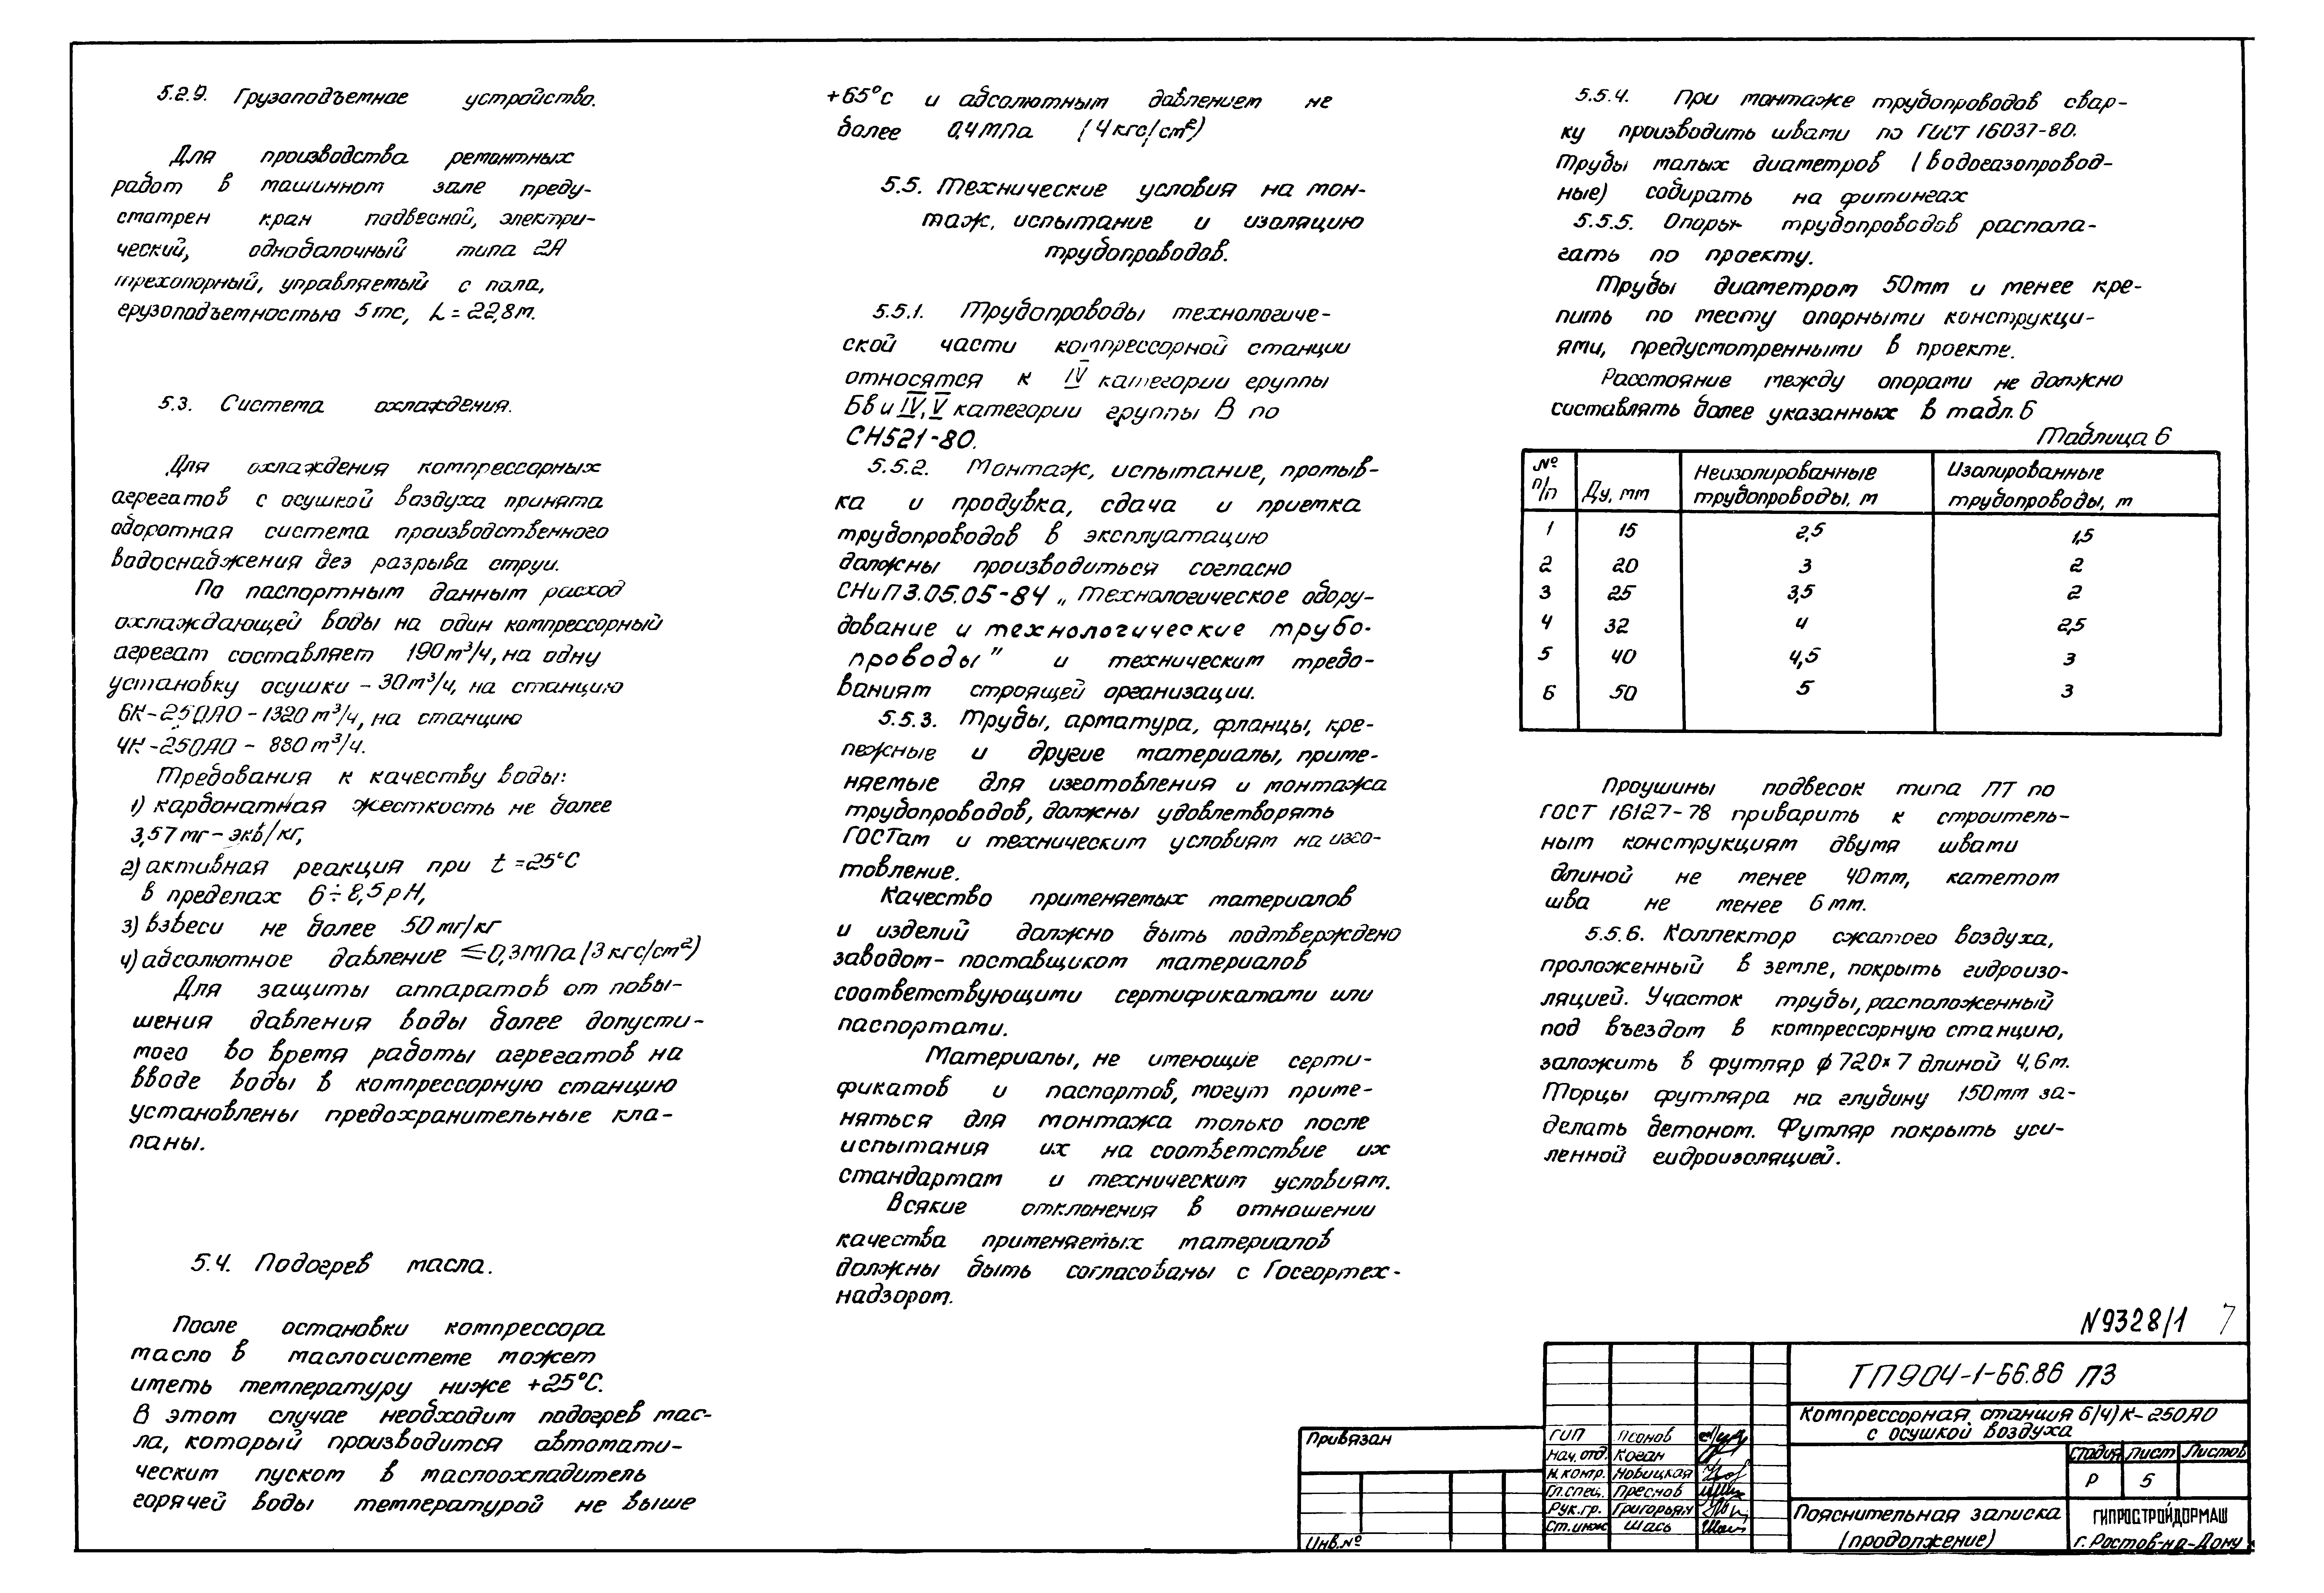 5.2.9. Грузоподъемное устройство.
Для производства ремонтных
работ в машинном зале преду-
смотрен кран подвесной, электри-
ческий, однобалочный типа 2А
трехопорный, управляемый с пола,
грузоподъемностью 5тс, L = 22,8м.
5.3. Система охлаждения.
Для охлаждения компрессорных
агрегатов с осушкой воздуха принята
оборотная система производственного
водоснабжения без разрыва струи.
По паспортным данным расход
охлаждающей воды на один компрессорный
агрегат составляет 190м³/ч, на одну
установку осушки – 30м³/ч, на станцию
6К-250АО - 1320 м³/ч, на станцию
4К-250АО - 880 м³/ч.
Требования к качеству воды:
1) карбонатная жесткость не более
3,57 мг-экв/кг,
2) активная реакция при t = 25°С
в пределах 6÷8,5 рН,
3) взвеси не более 50 мг/кг
4) абсолютное давление ≤0,3МПа (3 кгс/см²)
Для защиты аппаратов от повы-
шения давления воды более допусти-
мого во время работы агрегатов на
вводе воды в компрессорную станцию
установлены предохранительные кла-
паны.
5.4. Подогрев масла.
После остановки компрессора
масло в маслосистеме может
иметь температуру ниже +25°С.
В этом случае необходим подогрев мас-
ла, который производится автомати-
ческим пуском в маслоохладитель
горячей воды температурой не выше
+65°с и абсолютным давлением не
более 0,4МПа (4кгс/см²)
5.5. Технические условия на мон-
таж, испытание и изоляцию
трубопроводов.
5.5.1. Трубопроводы технологиче-
ской части компрессорной станции
относятся к IV категории группы
Бв и IV, V категории группы В по
СН521-80.
5.5.2. Монтаж, испытание, промыв-
ка и продувка, сдача и приемка
трубопроводов в эксплуатацию
должны производиться согласно
СНиП 3.05.05-84 „Технологическое обору-
дование и технологические трубо-
проводы" и техническим требо-
ваниям строящей организации.
5.5.3. Трубы, арматура, фланцы, кре-
пежные и другие материалы, приме-
няемые для изготовления и монтажа
трубопроводов, должны удовлетворять
ГОСТам и техническим условиям на изго-
товление.
Качество применяемых материалов
и изделий должно быть подтверждено
заводом-поставщиком материалов
соответствующими сертификатами или
паспортами.
Материалы, не имеющие серти-
фикатов и паспортов, могут приме-
няться для монтажа только после
испытания их на соответствие их
стандартам и техническим условиям.
Всякие отклонения в отношении
качества применяемых материалов
должны быть согласованы с Госгортех-
надзором.
5.5.4. При монтаже трубопроводов свар-
ку производить швами по ГОСТ 16037-80.
Трубы малых диаметров (водогазопровод-
ные) собирать на фитингах
5.5.5. Опоры трубопроводов распола-
гать по проекту.
Трубы диаметром 50мм и менее кре-
пить по месту опорными конструкци-
ями, предусмотренными в проекте.
Расстояние между опорами не должно
составлять более указанных в табл. 6
Таблица 6
№ п/п Ду, мм Неизолированные трубопроводы, м Изолированные трубопроводы, м
1 15 2,5 1,5
2 20 3 2
3 25 3,5 2
4 32 4 2,5
5 40 4,5 3
6 50 5 3
Проушины подвесок типа ПТ по
ГОСТ 16127-78 приварить к строитель-
ным конструкциям двумя швами
длиной не менее 40мм, катетом
шва не менее 6мм.
5.5.6. Коллектор сжатого воздуха,
проложенный в земле, покрыть гидроизо-
ляцией. Участок трубы, расположенный
под въездом в компрессорную станцию,
заложить в футляр ф 720×7 длиной 4,6м.
Торцы футляра на глубину 150мм за-
делать бетоном. Футляр покрыть уси-
ленной гидроизоляцией.
N9328/1 7
ТП904-1-66.86 ПЗ
Компрессорная станция 6(4)К-250АО
с осушкой воздуха
Привязан
Инв.№
ГИП Псонов
Нач.отд. Коган
Н.контр. Новицкая
Гл.спец. Преснов
Рук.гр. Григорьян
Ст.инж Шась
Стадия Лист Листов
Р 5
Пояснительная записка
(продолжение)
ГИПРОСТРОЙДОРМАШ
г. Ростов-на-Дону